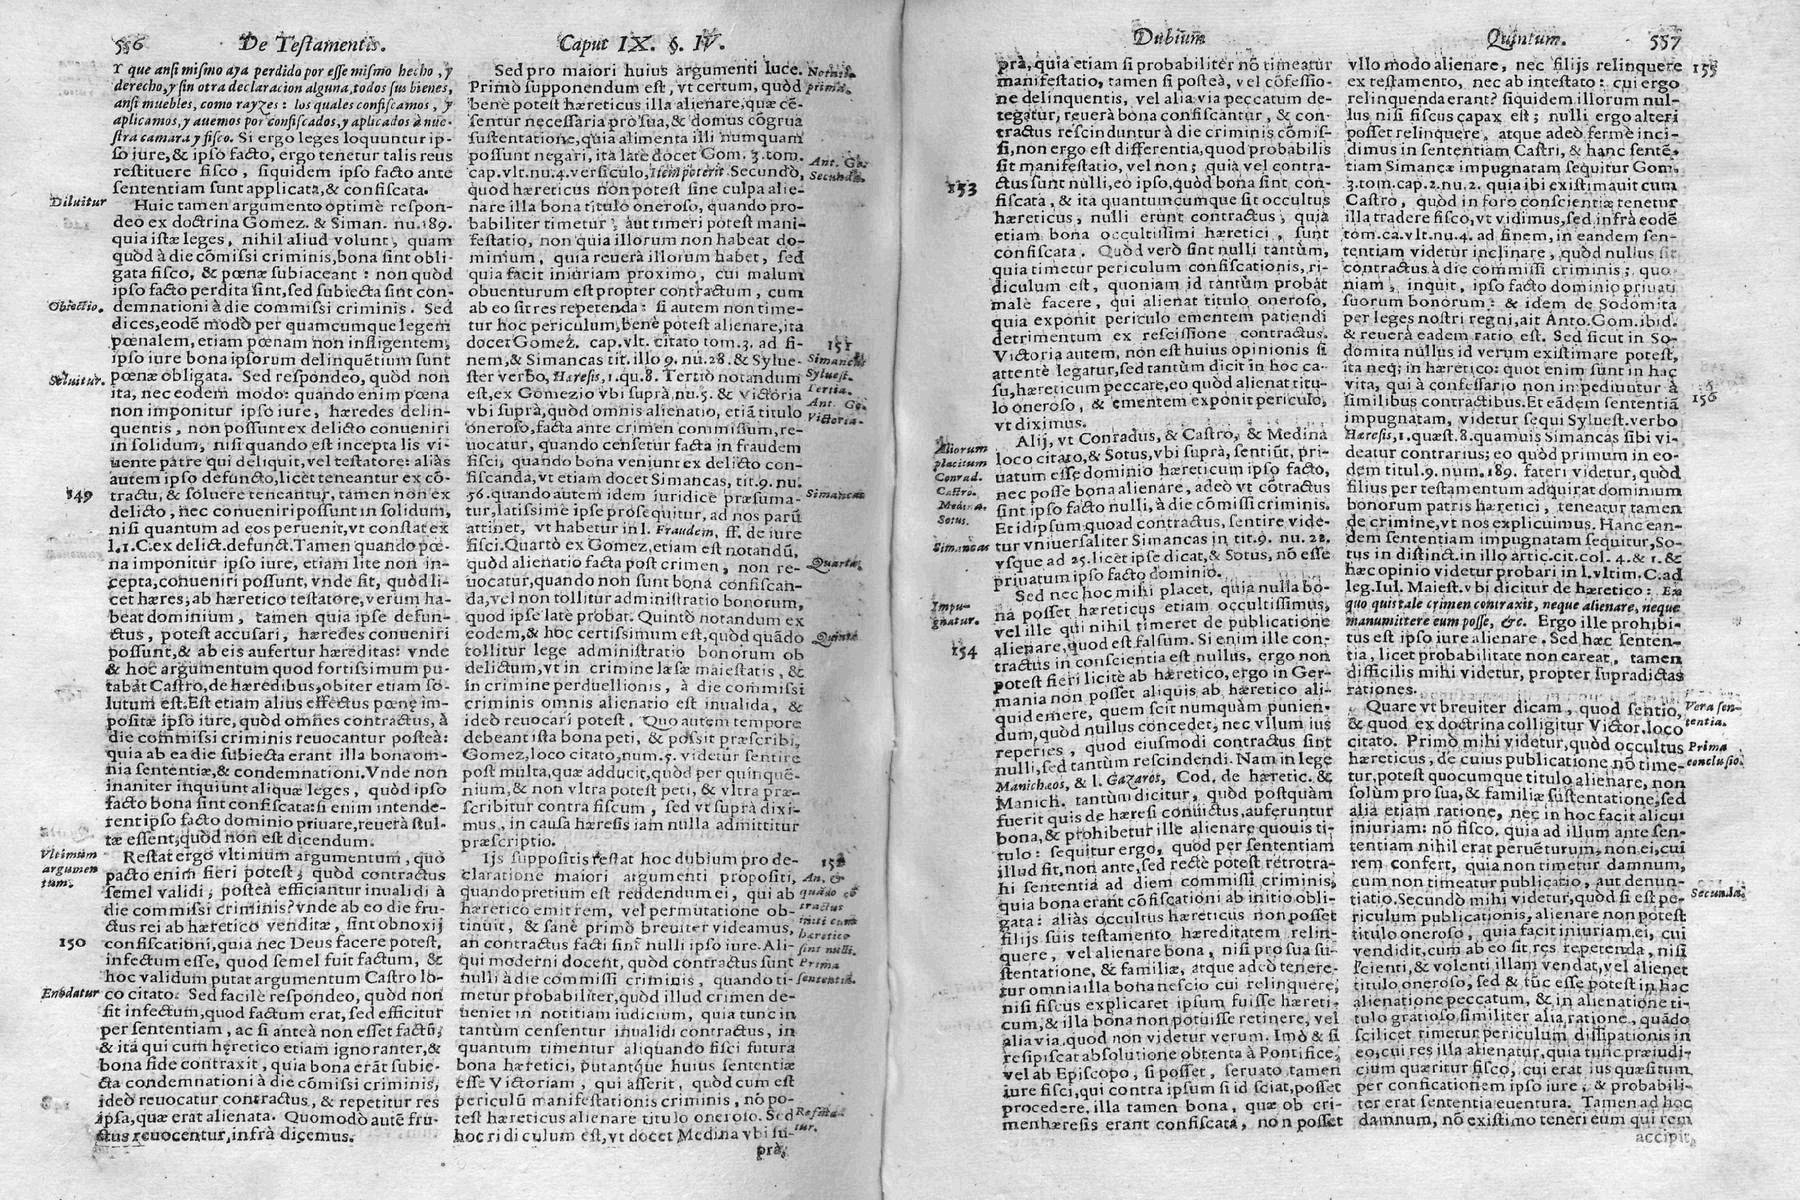 556 De Testamentis. Caput IX. §. IV.
Y que ansi mismo aya perdido por esse mismo hecho, y
derecho, y sin otra declaracion alguna, todos sus bienes,
ansi muebles, como rayzes: los quales confiscamos, y
aplicamos, y auemos por confiscados, y aplicados à nue-
stra camara y fisco. Si ergo leges loquuntur ip-
so iure, & ipso facto, ergo tenetur talis reus
restituere fisco, siquidem ipso facto ante
sententiam sunt applicata, & confiscata.
Diluitur
Huic tamen argumento optimè respon-
deo ex doctrina Gomez. & Siman. nu. 189.
quia istæ leges, nihil aliud volunt, quam
quòd à die cõmissi criminis, bona sint obli-
gata fisco, & pœnæ subiaceant: non quòd
ipso facto perdita sint, sed subiecta sint con-
Obiectio.
demnationi à die commissi criminis. Sed
dices, eodẽ modo per quamcumque legem
pœnalem, etiam pœnam non infligentem,
ipso iure bona ipsorum delinquẽtium sunt
Soluitur.
pœnæ obligata. Sed respondeo, quòd non
ita, nec eodem modo: quando enim pœna
non imponitur ipso iure, hæredes delin-
quentis, non possunt ex delicto conueniri
in solidum, nisi quando est incepta lis vi-
uente patre qui deliquit, vel testatore: aliàs
autem ipso defuncto, licet teneantur ex cõ-
149
tractu, & soluere teneantur, tamen non ex
delicto, nec conueniri possunt in solidum,
nisi quantum ad eos peruenit, vt constat ex
l. 1. C. ex delict. defunct. Tamen quando pœ-
na imponitur ipso iure, etiam lite non in-
cepta, conueniri possunt, vnde fit, quòd li-
cet hæres, ab hæretico testatore, verum ha-
beat dominium, tamen quia ipse defun-
ctus, potest accusari, hæredes conueniri
possunt, & ab eis aufertur hæreditas: vnde
& hoc argumentum quod fortissimum pu-
tabat Castro, de hæredibus, obiter etiam so-
lutum est. Est etiam alius effectus pœnę im-
positæ ipso iure, quòd omnes contractus, à
die commissi criminis reuocantur posteà:
quia ab ea die subiecta erant illa bona om-
nia sententiæ, & condemnationi. Vnde non
inaniter inquiunt aliquæ leges, quòd ipso
facto bona sint confiscata: si enim intende-
rent ipso facto dominio priuare, reuerà stul-
tæ essent, quòd non est dicendum.
Vltimum
argumen
tum.
Restat ergo vltimum argumentum, quo
pacto enim fieri potest, quòd contractus
semel validi, posteà efficiantur inualidi à
die commissi criminis? vnde ab eo die fru-
ctus rei ab hæretico venditæ, sint obnoxij
150
confiscationi, quia nec Deus facere potest,
infectum esse, quod semel fuit factum, &
hoc validum putat argumentum Castro lo-
Enodatur
co citato. Sed facilè respondeo, quòd non
fit infectum, quod factum erat, sed efficitur
per sententiam, ac si anteà non esset factũ,
& ità qui cum hęretico etiam ignoranter, &
bona fide contraxit, quia bona erãt subie-
cta condemnationi à die cõmissi criminis,
ideò reuocatur contractus, & repetitur res
ipsa, quæ erat alienata. Quomodò autẽ fru-
ctus reuocentur, infrà dicemus.
Sed pro maiori huius argumenti luce.
Notab.
prima.
Primò supponendum est, vt certum, quòd
benè potest hæreticus illa alienare, quæ cẽ-
sentur necessaria pro sua, & domus cõgrua
sustentatione, quia alimenta illi numquam
possunt negari, ità latè docet Gom. 3. tom.
Ant. Go.
Secunda.
cap. vlt. nu. 4. versiculo, Item poterit. Secundò,
quòd hæreticus non potest sine culpa alie-
nare illa bona titulo oneroso, quando pro-
babiliter timetur, aut timeri potest mani-
festatio, non quia illorum non habeat do-
minium, quia reuerà illorum habet, sed
quia facit iniuriam proximo, cui malum
obuenturum est propter contractum, cum
ab eo sit res repetenda: si autem non time-
tur hoc periculum, benè potest alienare, ità
151
docet Gomez. cap. vlt. citato tom. 3. ad fi-
Simancas
nem, & Simancas tit. illo 9. nu. 28. & Sylue-
Syluest.
Tertia.
ster verbo, Hæresis, 1. qu. 8. Tertiò notandum
est, ex Gomezio vbi suprà, nu. 5. & Victòria
Ant. Go.
Victoria.
vbi suprà, quòd omnis alienatio, etiã titulo
oneroso, facta ante crimen commissum, re-
uocatur, quando censetur facta in fraudem
fisci, quando bona veniunt ex delicto con-
fiscanda, vt etiam docet Simancas, tit. 9. nu.
Simancas
56. quando autem idem iuridicè præsuma-
tur, latissimè ipse prosequitur, ad nos parũ
attinet, vt habetur in l. Fraudem, ff. de iure
fisci. Quartò ex Gomez, etiam est notandũ,
Quarta.
quòd alienatio facta post crimen, non re-
uocatur, quando non sunt bona confiscan-
da, vel non tollitur administratio bonorum,
quod ipse latè probat. Quintò notandum ex
Quinta.
eodem, & hoc certissimum est, quòd quãdo
tollitur lege administratio bonorum ob
delictum, vt in crimine læsæ maiestatis, &
in crimine perduellionis, à die commissi
criminis omnis alienatio est inualida, &
ideò reuocari potest. Quo autem tempore
debeant ista bona peti, & possit præscribi,
Gomez, loco citato, num. 5. videtur sentire
post multa, quæ adducit, quòd per quinquẽ-
nium, & non vltra potest peti, & vltra præ-
scribitur contra fiscum, sed vt suprà dixi-
mus, in causa hæresis iam nulla admittitur
præscriptio.
152
Ijs suppositis restat hoc dubium pro de-
claratione maiori argumenti propositi,
An, &
quãdo cõ
tractus
initi cum
hæretico
sint nulli.
Prima
sententia.
quando pretium est reddendum ei, qui ab
hæretico emit rem, vel permutatione ob-
tinuit, & sanè primò breuiter videamus,
an contractus facti sint nulli ipso iure. Ali-
qui moderni docent, quòd contractus sunt
nulli à die commissi criminis, quando ti-
metur probabiliter, quòd illud crimen de-
ueniet in notitiam iudicium, quia tunc in
tantùm censentur inualidi contractus, in
quantum timentur aliquando fisci futura
bona hæretici, putantque huius sententiæ
esse Victoriam, qui asserit, quòd cum est
periculũ manifestationis criminis, nõ po-
test hæreticus alienare titulo oneroso. Sed
Refuta-
tur.
hoc ridiculum est, vt docet Medina vbi su-
prà,
Dubium Quintum. 557
prà, quia etiam si probabiliter nõ timeatur
manifestatio, tamen si posteà, vel cõfessio-
ne delinquentis, vel alia via peccatum de-
tegitur, reuerà bona confiscantur, & con-
tractus rescinduntur à die criminis cõmis-
si, non ergo est differentia, quod probabilis
sit manifestatio, vel non; quia vel contra-
153
ctus sunt nulli, eo ipso, quòd bona sint con-
fiscata, & ità quantumcumque sit occultus
hæreticus, nulli erunt contractus, quia
etiam bona occultissimi hæretici, sunt
confiscata. Quòd verò sint nulli tantùm,
quia timetur periculum confiscationis, ri-
diculum est, quoniam id tantùm probat
malè facere, qui alienat titulo oneroso,
quia exponit periculo ementem patiendi
detrimentum ex rescissione contractus.
Victoria autem, non est huius opinionis si
attentè legatur, sed tantùm dicit in hoc ca-
su, hæreticum peccare, eo quòd alienat titu-
lo oneroso, & ementem exponit periculo,
vt diximus.
Aliorum
placitum
Conrad.
Castro.
Medina.
Sotus.
Alij, vt Conradus, & Castro, & Medina
loco citato, & Sotus, vbi suprà, sentiũt, pri-
uatum esse dominio hæreticum ipso facto,
nec posse bona alienare, adeò vt cõtractus
sint ipso facto nulli, à die cõmissi criminis.
Et idipsum quoad contractus, sentire vide-
Simancas
tur vniuersaliter Simancas in tit. 9. nu. 22.
vsque ad 25. licet ipse dicat, & Sotus, nõ esse
priuatum ipso facto dominio.
Impu-
gnatur.
Sed nec hoc mihi placet, quia nulla bo-
na posset hæreticus etiam occultissimus,
vel ille qui nihil timeret de publicatione
154
alienare, quod est falsum. Si enim ille con-
tractus in conscientia est nullus, ergo non
potest fieri licitè ab hæretico, ergo in Ger-
mania non posset aliquis ab hæretico ali-
quid emere, quem scit numquàm punien-
dum, quòd nullus concedet, nec vllum ius
reperies, quòd eiusmodi contractus sint
nulli, sed tantùm rescindendi. Nam in lege
Manichæos, & l. Gazaros, Cod. de hæretic. &
Manich. tantùm dicitur, quòd postquàm
fuerit quis de hæresi conuictus, auferuntur
bona, & prohibetur ille alienare quouis ti-
tulo: sequitur ergo, quòd per sententiam
illud fit, non ante, sed rectè potest retrotra-
hi sententia ad diem commissi criminis,
quia bona erant cõfiscationi ab initio obli-
gata: aliàs occultus hæreticus non posset
filijs suis testamento hæreditatem relin-
quere, vel alienare bona, nisi pro sua su-
stentatione, & familiæ, atque adeò tenere-
tur omnia illa bona nescio cui relinquere,
nisi fiscus explicaret ipsum fuisse hæreti-
cum, & illa bona non potuisse retinere, vel
alia via, quod non videtur verum. Imò & si
resipiscat absolutione obtenta à Pontifice,
vel ab Episcopo, si posset, seruato tamen
iure fisci, qui contra ipsum si id sciat, posset
procedere, illa tamen bona, quæ ob cri-
men hæresis erant confiscata, non posset
vllo modo alienare, nec filijs relinquere
155
ex testamento, nec ab intestato: cui ergo
relinquenda erant? siquidem illorum nul-
lus nisi fiscus capax est; nulli ergo alteri
posset relinquere, atque adeò fermè inci-
dimus in sententiam Castri, & hanc sentẽ-
tiam Simancæ impugnatam sequitur Gom.
3. tom. cap. 2. nu. 2. quia ibi existimauit cum
Castro, quòd in foro conscientiæ tenetur
illa tradere fisco, vt vidimus, sed infrà eodẽ
tom. ca. vlt. nu. 4. ad finem, in eandem sen-
tentiam videtur inclinare, quòd nullus sit
contractus à die commissi criminis; quo-
niam, inquit, ipso facto dominio priuati
suorum bonorum: & idem de Sodomita
per leges nostri regni, ait Anto. Gom. ibid.
& reuerà eadem ratio est. Sed sicut in So-
domita nullus id verum existimare potest,
ita neq; in hæretico: quot enim sunt in hac
vita, qui à confessario non impediuntur à
156
similibus contractibus. Et eãdem sententiã
impugnatam, videtur sequi Syluest. verbo
Hæresis, 1. quæst. 8. quamuis Simancas sibi vi-
deatur contrarius; eo quòd primum in eo-
dem titul. 9. num. 189. fateri videtur, quòd
filius per testamentum adquirat dominium
bonorum patris hæretici, teneatur tamen
de crimine, vt nos explicuimus. Hanc ean-
dem sententiam impugnatam sequitur, So-
tus in distinct. in illo artic. cit. col. 4. & 1. &
hæc opinio videtur probari in l. vltim. C. ad
leg. Iul. Maiest. vbi dicitur de hæretico: Ex
quo quis tale crimen contraxit, neque alienare, neque
manumittere eum posse, &c. Ergo ille prohibi-
tus est ipso iure alienare. Sed hæc senten-
tia, licet probabilitate non careat, tamen
difficilis mihi videtur, propter supradictas
rationes.
Vera sen-
tentia.
Quare vt breuiter dicam, quod sentio,
& quod ex doctrina colligitur Victor. loco
Prima
conclusio.
citato. Primò mihi videtur, quòd occultus
hæreticus, de cuius publicatione nõ time-
tur, potest quocumque titulo alienare, non
solùm pro sua, & familiæ sustentatione, sed
alia etiam ratione, nec in hoc facit alicui
iniuriam: nõ fisco, quia ad illum ante sen-
tentiam nihil erat peruẽturum, non ei, cui
rem confert, quia non timetur damnum,
cum non timeatur publicatio, aut denun-
Secunda.
tiatio. Secundò mihi videtur, quòd si est pe-
riculum publicationis, alienare non potest
titulo oneroso, quia facit iniuriam ei, cui
vendidit, cum ab eo sit res repetenda, nisi
scienti, & volenti illam vendat, vel alienet
titulo oneroso, sed & tũc esse potest in hac
alienatione peccatum, & in alienatione ti-
tulo gratioso, similiter alia ratione, quãdo
scilicet timetur periculum dissipationis in
eo, cui res illa alienatur, quia tunc præiudi-
cium quæritur fisco, cui erat ius quæsitum
per conficationem ipso iure, & probabili-
ter erat sententia euentura. Tamen ad hoc
damnum, nõ existimo teneri eum qui rem
accipit,